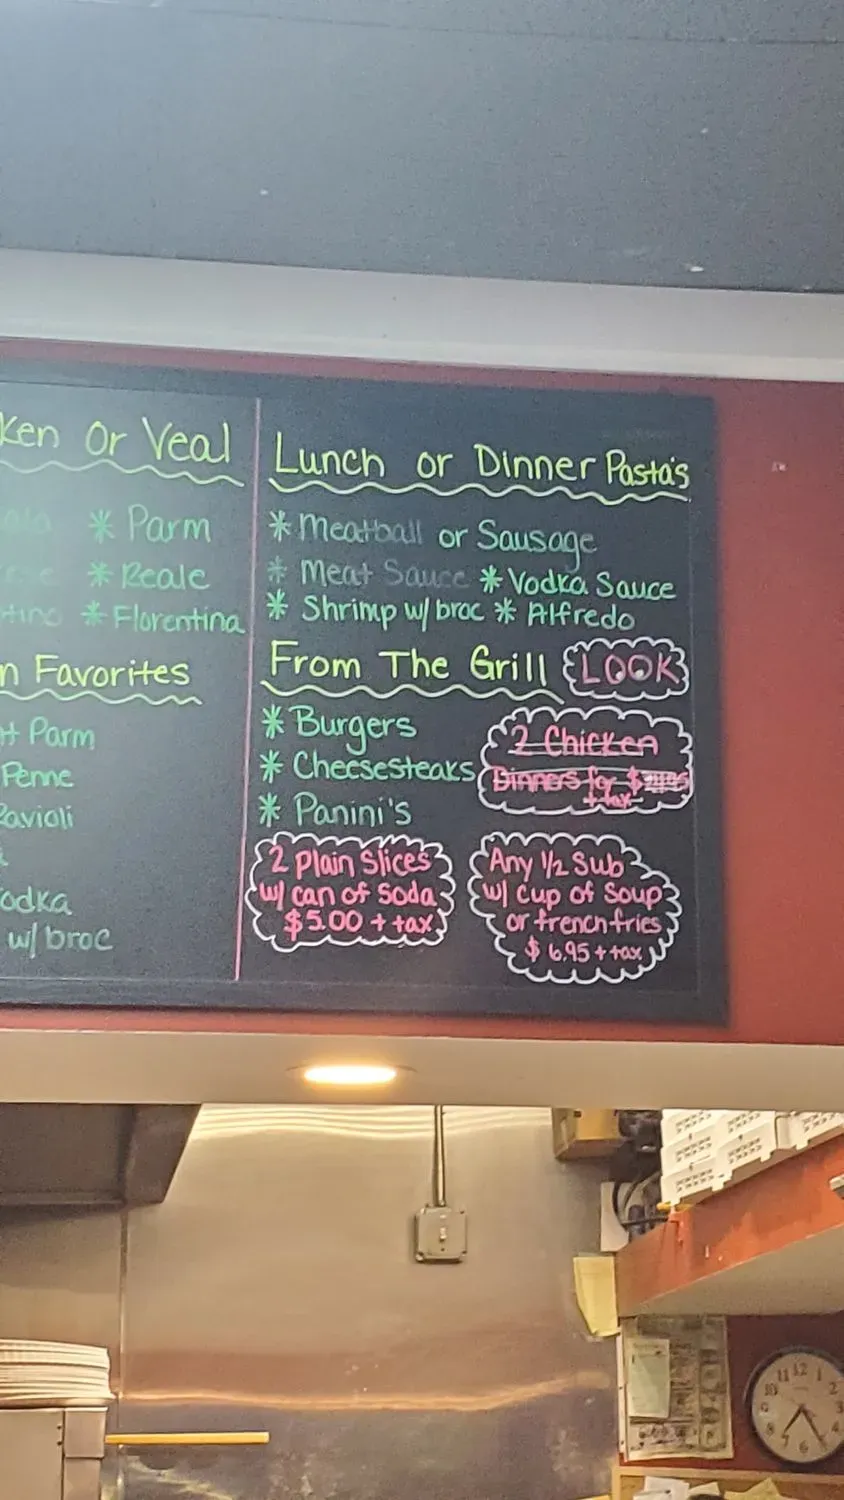 Or Veal
* Parm
* Reale
* Florentina
Favorites
Parm
Penne
Ravioli
w/ broc
Lunch or Dinner Pasta's
* Meatball or Sausage
* Meat Sauce * Vodka Sauce
* Shrimp w/ broc * Alfredo
From The Grill
LOOK
* Burgers
* Cheesesteaks
* Panini's
2 Chicken
Dinners for $
+ tax
2 Plain Slices
w/ can of Soda
$5.00 + tax
Any 1/2 Sub
w/ cup of Soup
or french fries
$ 6.95 + tax
11 12 1
10 2
8 4
7 6